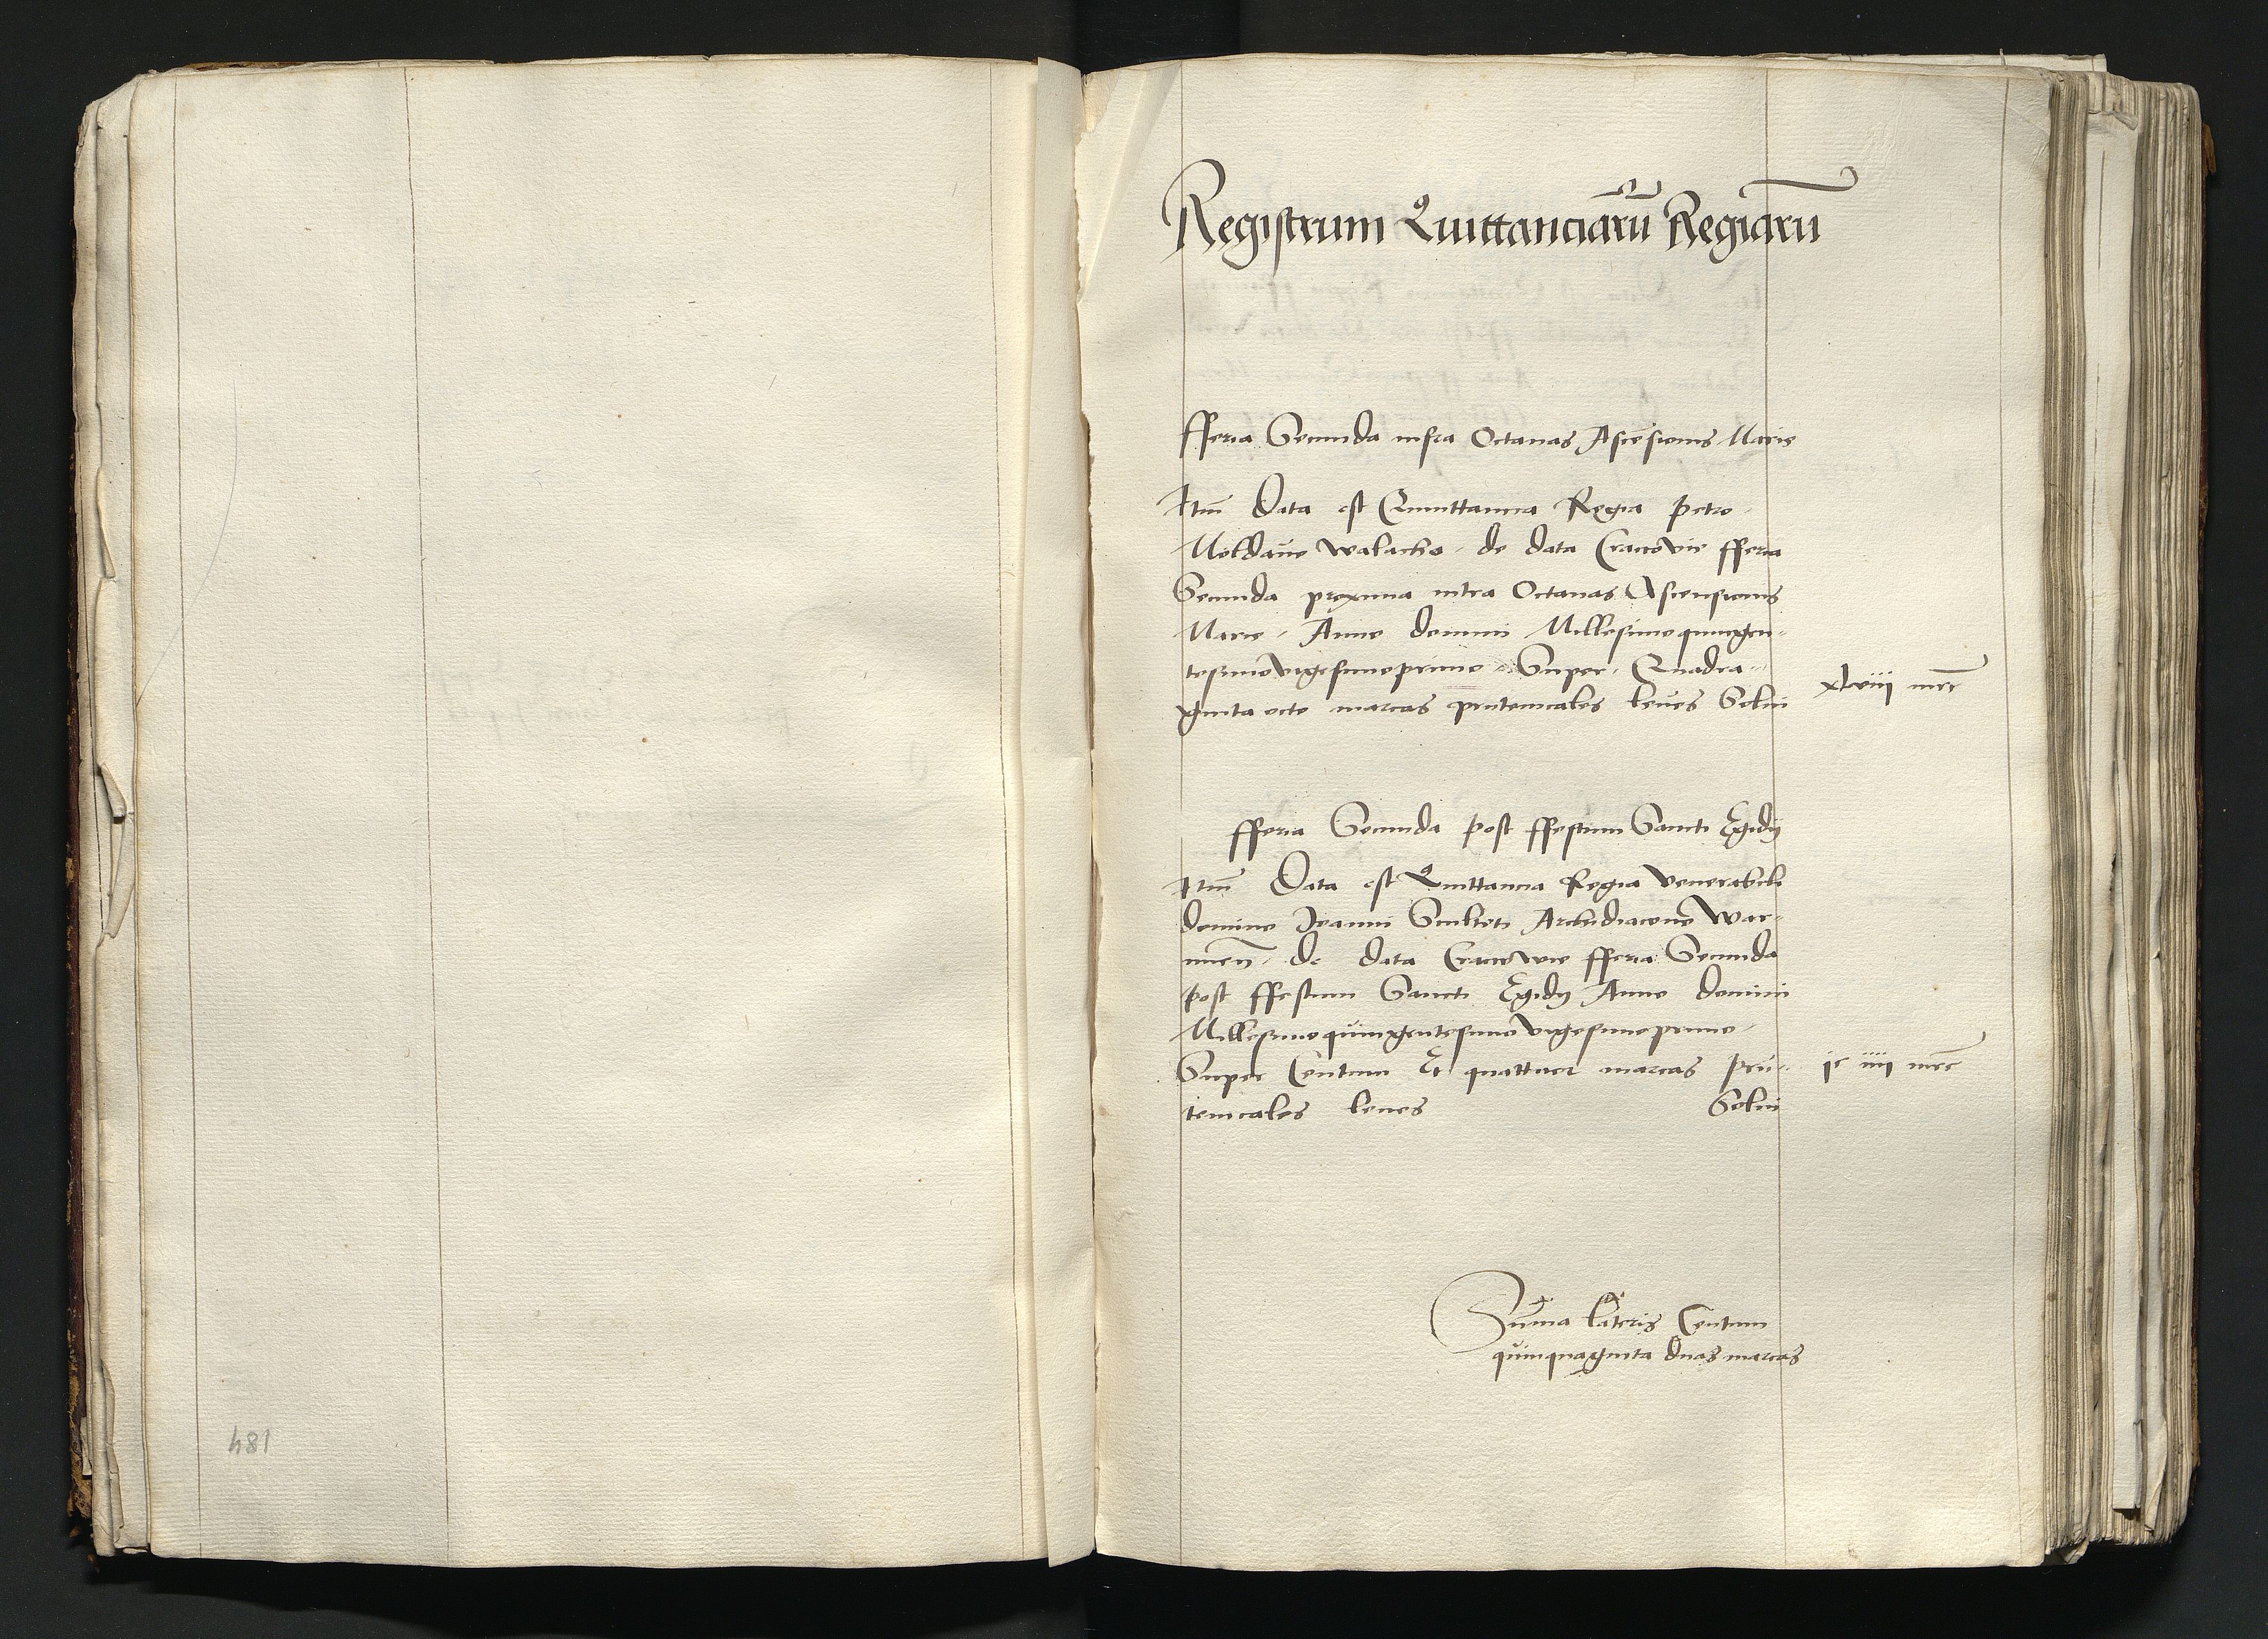 Registrum Quittanciarū Regiarū
fferia Secunda infra Octauas Ascēsionis Marie
Itm̄ Data est Quuittancia Regia Petro
Moldaūo walacho de data Cracoviē fferia
Secunda proxima intra Octauas Ascensionis
Marie Anno domini Millesimoquingen-
tesimovigesimoprimo Super Quadra-
ginta octo marcas prutenicales leues Solui
xlviii mrc̄
fferia Secunda post ffestum Sancti Egidij
Itm̄ Data est Quittancia Regia Venerabili
domino Joanni Sculteti Archidiacono War-
mieñ de data Cracowie fferia Secunda
post ffestum Sancti Egidij Anno domini
Millesimoquingentesimovigesimoprimo
Super Centum Et quattuor marcas Prū-
tenicales leues Solui
jc iiij mrc̄
Sūma lateris Centum
quinquaginta duas marcas
184